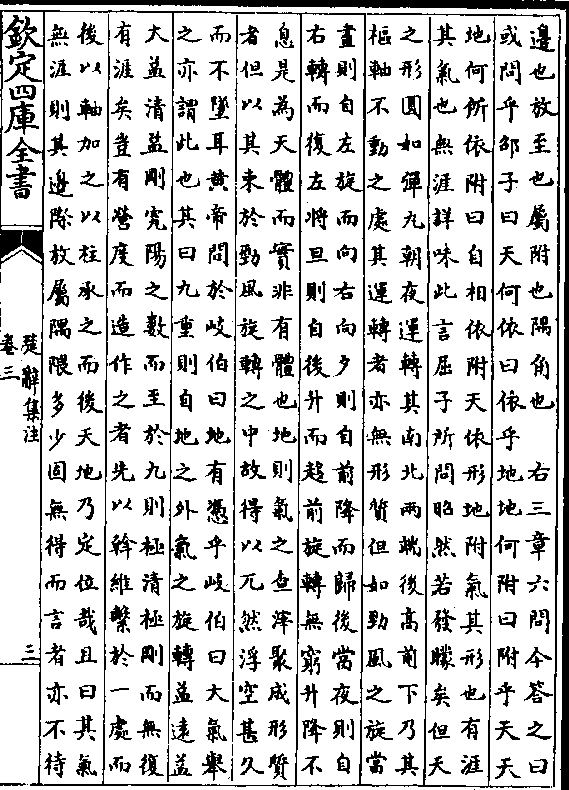 邊也放至也屬附也隅角也　右三章六問今答之曰
或問乎邵子曰天何依曰依乎地地何附曰附乎天天
地何所依附曰自相依附天依形地附氣其形也有涯
其氣也無涯詳味此言屈子所問昭然若發矇矣但天
之形圓如彈丸朝夜運轉其南北兩端後高前下乃其
樞軸不動之處其運轉者亦無形質但如勁風之旋當
晝則自左旋而向右向夕則自前降而歸後當夜則自
右轉而復左將旦則自後升而趨前旋轉無窮升降不
息是為天體而實非有體也地則氣之查滓聚成形質
者但以其束於勁風旋轉之中故得以兀然浮空甚久
而不墜耳黃帝問於岐伯曰地有憑乎岐伯曰大氣舉
之亦謂此也其曰九重則自地之外氣之旋轉益遠益
大益清益剛究陽之數而至於九則極清極剛而無復
有涯矣豈有營度而造作之者先以斡維繫於一處而
後以軸加之以柱承之而後天地乃定位哉且曰其氣
無涯則其邊際放屬隅隈多少固無得而言者亦不待
欽定四庫全書
楚辭集注
卷三
三